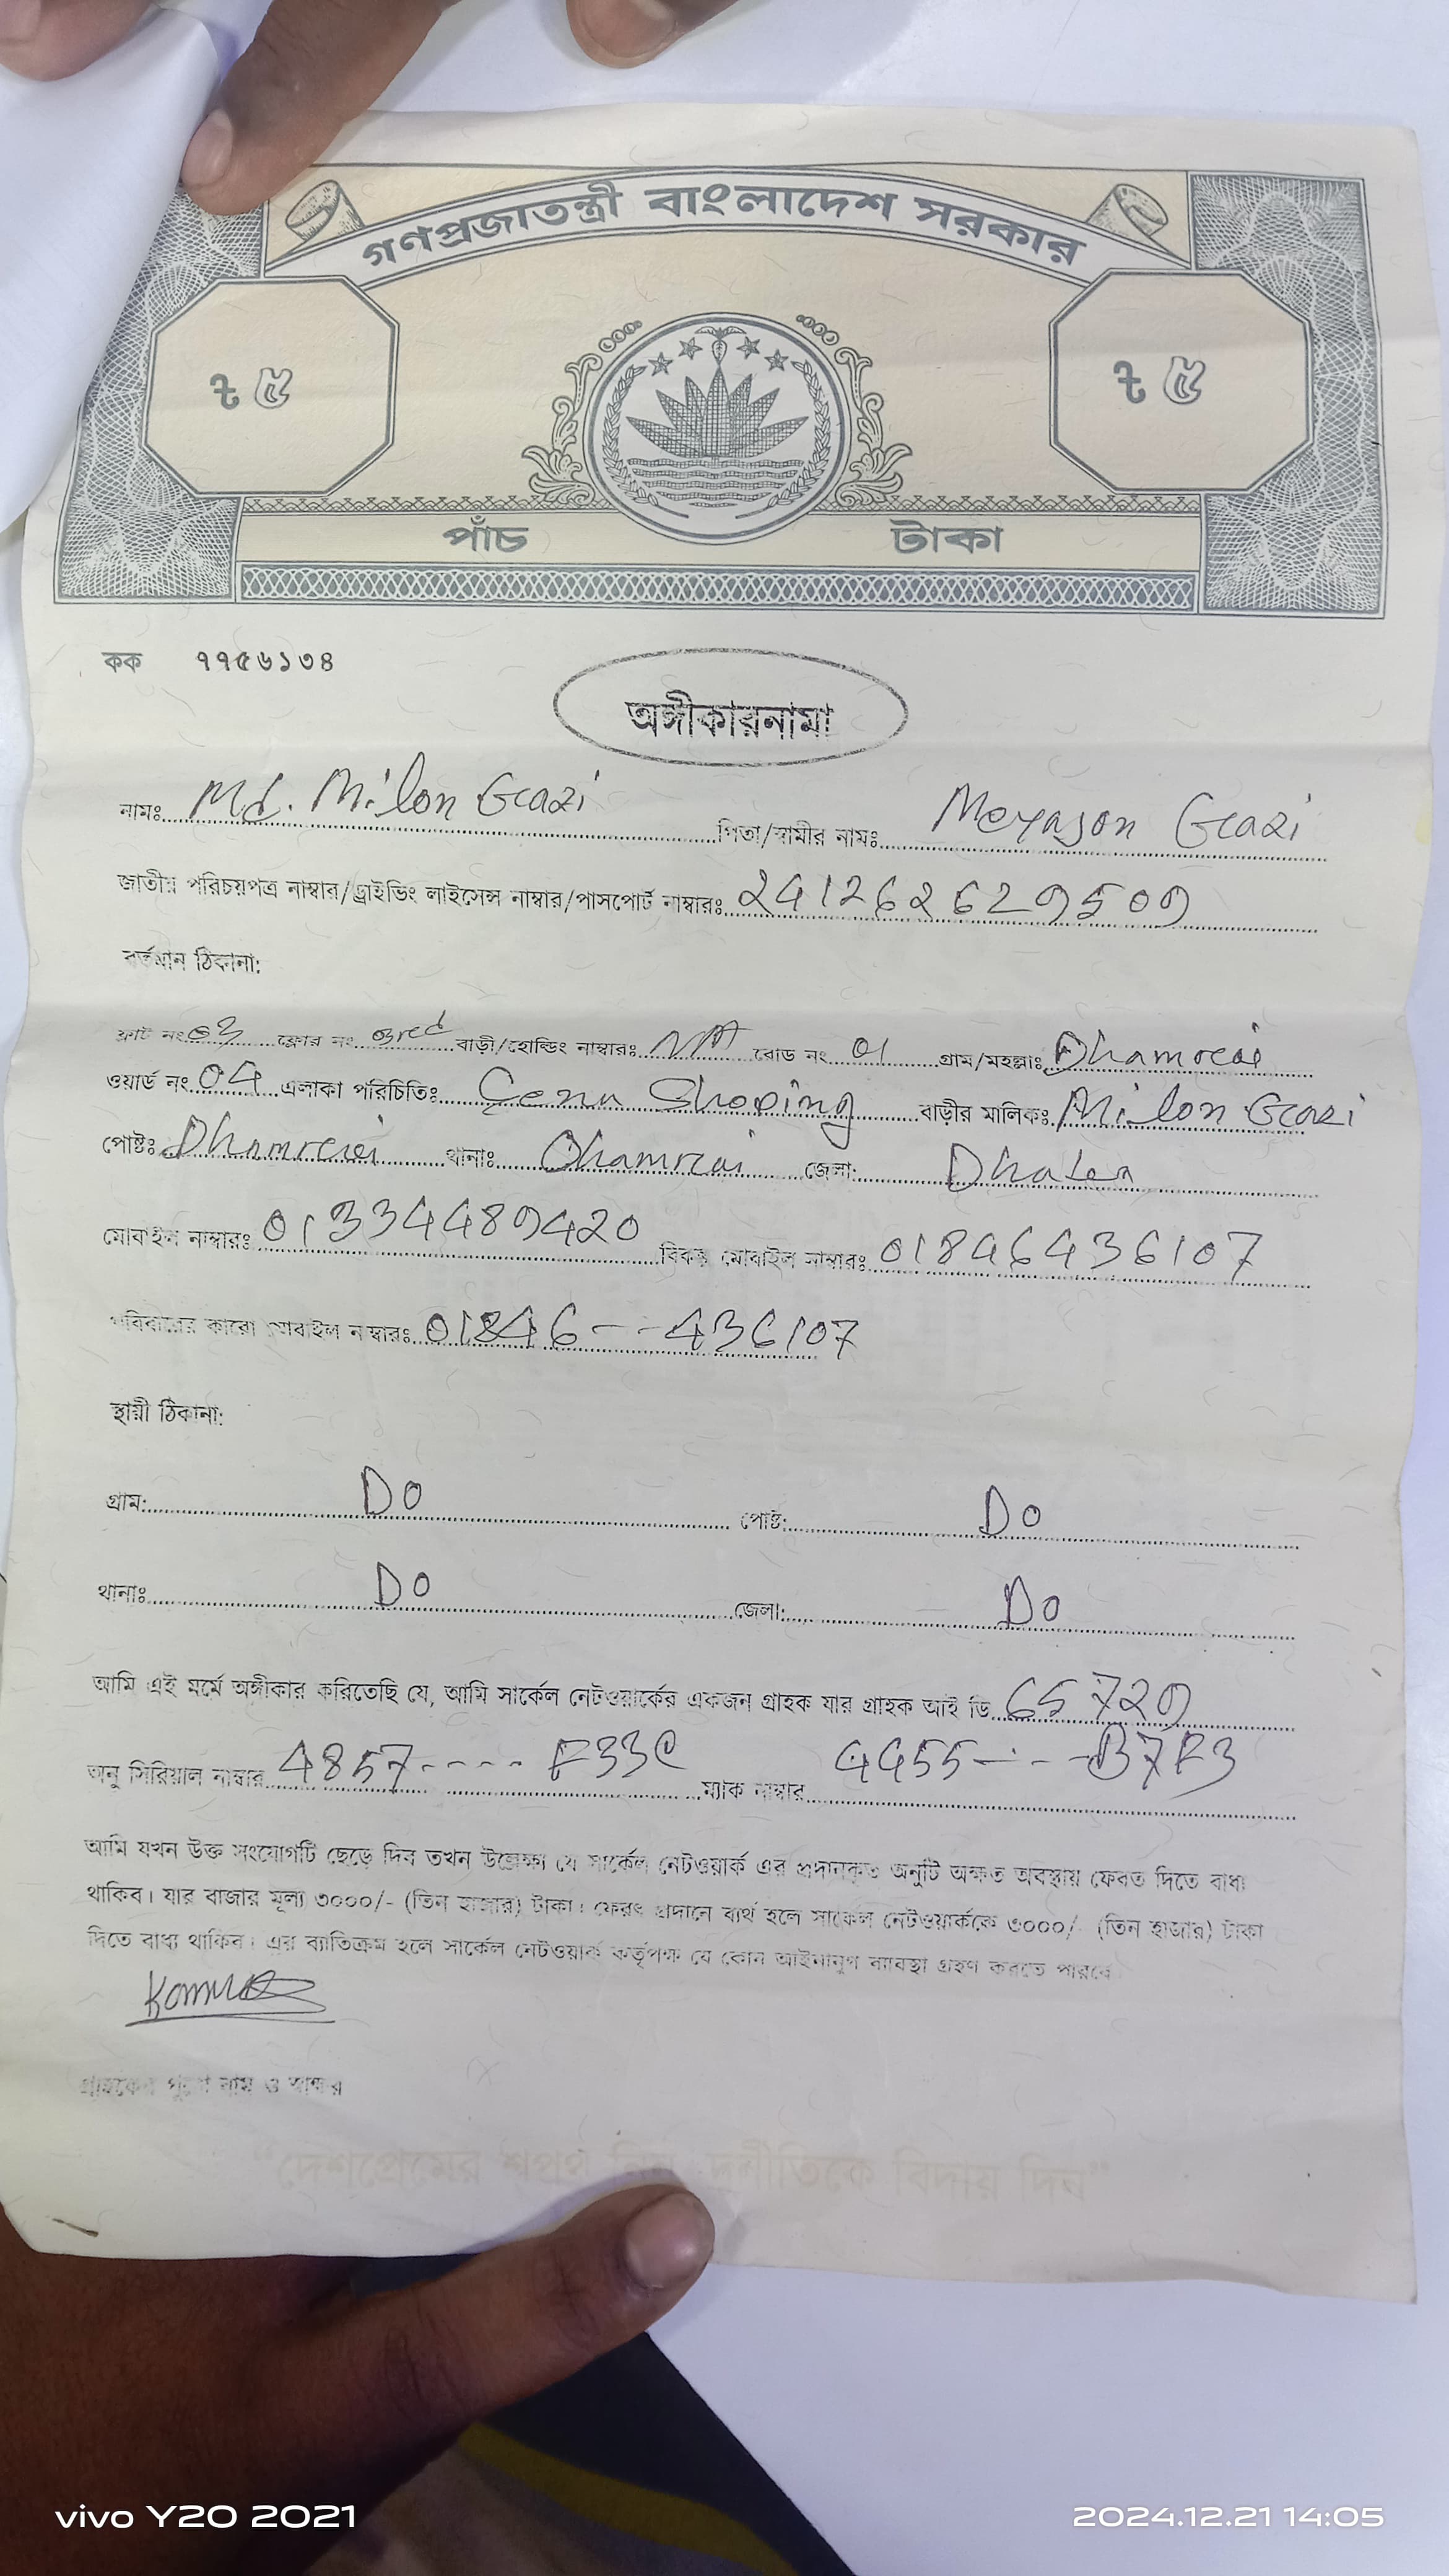 গণপ্রজাতন্ত্রী বাংলাদেশ সরকার
৳ ৫ ৳ ৫
পাঁচ টাকা
কক ৭৭৫৬১৩৪
অঙ্গীকারনামা
নামঃ Md. Milon Gazi পিতা/স্বামীর নামঃ Meyajon Gazi
জাতীয় পরিচয়পত্র নাম্বার/ড্রাইভিং লাইসেন্স নাম্বার/পাসপোর্ট নাম্বারঃ
বর্তমান ঠিকানা:
ফ্লাট নং 03 ফ্লোর নং 3red বাড়ী/হোল্ডিং নাম্বারঃ N/A রোড নং 01 গ্রাম/মহল্লাঃ Dhamrai
ওয়ার্ড নং 04 এলাকা পরিচিতিঃ Shoping বাড়ীর মালিকঃ Milon Gazi
পোষ্টঃ Dhamrai থানাঃ Dhamrai জেলা: Dhaka
মোবাইল নাম্বারঃ 01334489420 বিকল্প মোবাইল নাম্বারঃ 01846436107
পরিবারের কারো মোবাইল নাম্বারঃ 01846---436107
স্থায়ী ঠিকানা:
গ্রাম: DO পোষ্ট: DO
থানাঃ DO জেলা: DO
আমি এই মর্মে অঙ্গীকার করিতেছি যে, আমি সার্কেল নেটওয়ার্কের একজন গ্রাহক যার গ্রাহক আই ডি 65729
অনু সিরিয়াল নাম্বার 4857---- F33C ম্যাক নাম্বার 4455----B7F3
আমি যখন উক্ত সংযোগটি ছেড়ে দিব তখন উল্লেক্ষ্য যে সার্কেল নেটওয়ার্ক এর প্রদানকৃত অনুটি অক্ষত অবস্থায় ফেরত দিতে বাধ্য
থাকিব। যার বাজার মূল্য ৩০০০/- (তিন হাজার) টাকা। ফেরৎ প্রদানে ব্যর্থ হলে সার্কেল নেটওয়ার্ককে ৩০০০/- (তিন হাজার) টাকা
দিতে বাধ্য থাকিব। এর ব্যাতিক্রম হলে সার্কেল নেটওয়ার্ক কর্তৃপক্ষ যে কোন আইনানুগ ব্যাবস্থা গ্রহণ করতে পারবে
গ্রাহকের পুরো নাম ও স্বাক্ষর
“দেশপ্রেমের শপথ নিন, দুর্নীতিকে বিদায় দিন”
vivo Y20 2021 2024.12.21 14:05